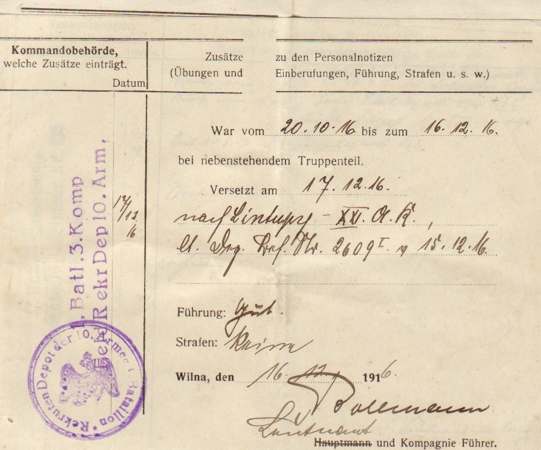 Kommandobehörde,
welche Zusätze einträgt.
Datum
Zusätze zu den Personalnotizen
(Übungen und Einberufungen, Führung, Strafen u. s. w.)
Batl. 3. Komp
Rekr Dep 10. Arm,
17/12
16
Rekruten Depot der 10. Armee Bataillon
War vom 20.10.16 bis zum 16.12.16.
bei nebenstehendem Truppenteil.
Versetzt am 17.12.16.
nach Lintupy - XXI. A.K.,
lt. Nr. 2609 I v 15.12.16
Führung: Gut.
Strafen: Keine
Wilna, den 16.12. 1916.
Leutnant
Hauptmann und Kompagnie Führer.